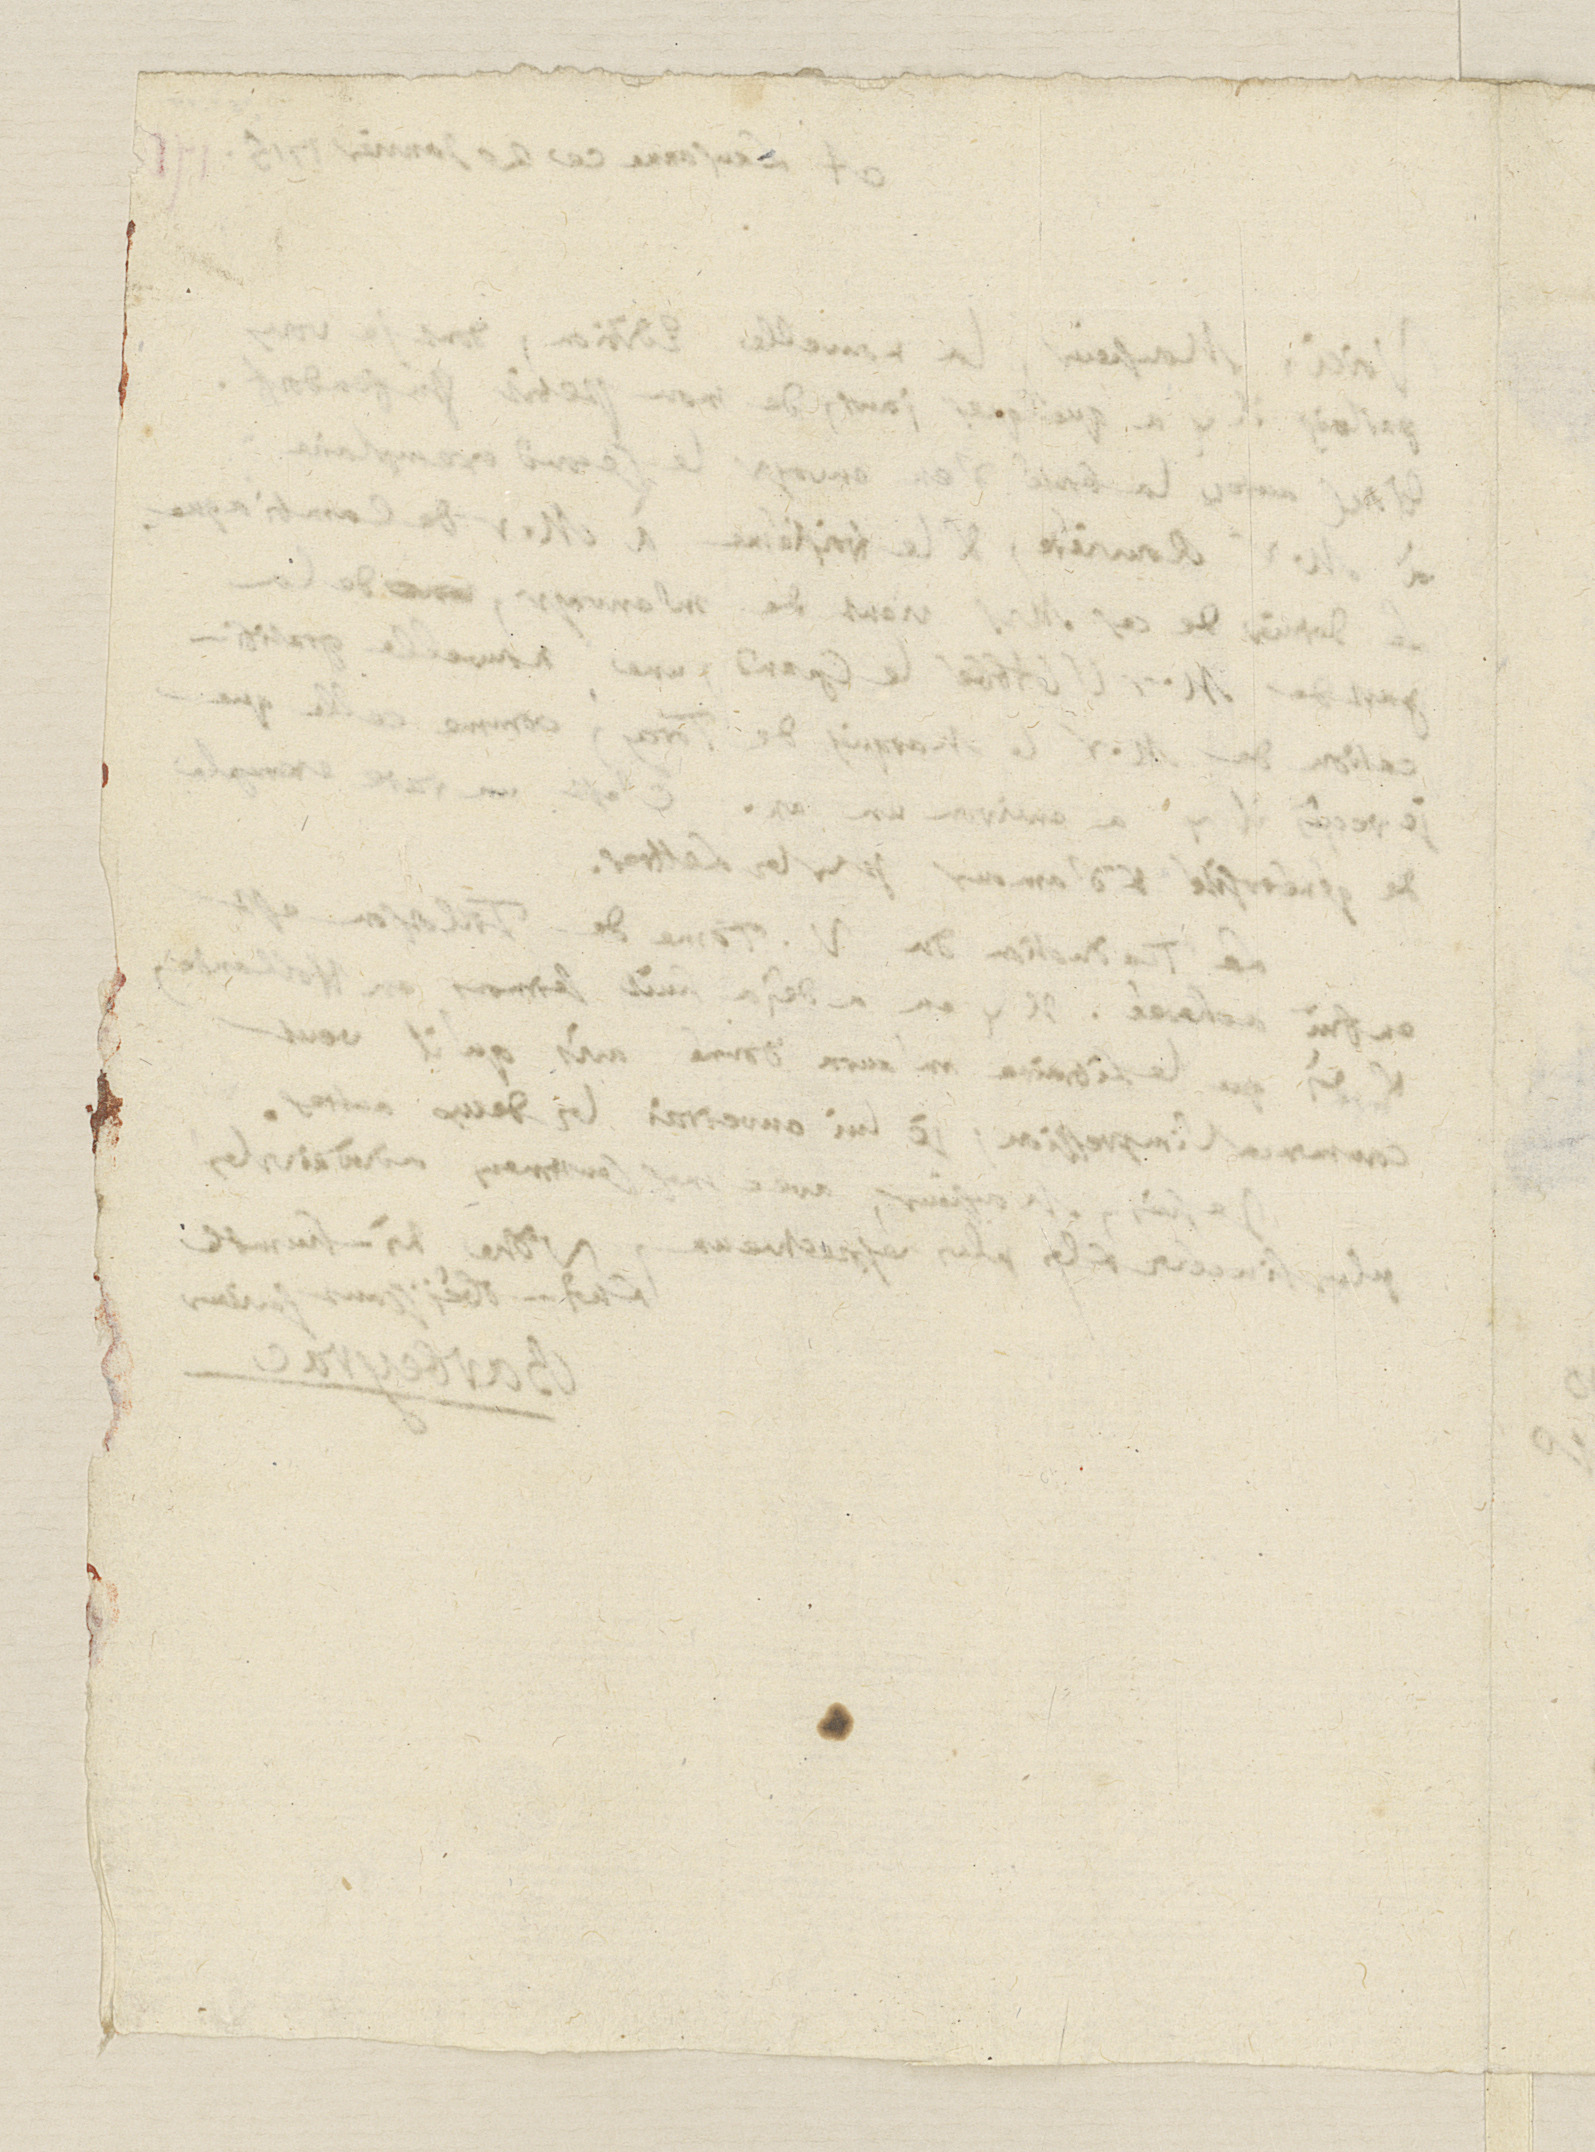 A Lausanne ce 20 Janvier 1715.
Voici, Monsieur, la nouvelle Edition, dont je vous
parlois il y a quelques jours, de mon petit Pufendorf.
avoir la bonté d'en envoyer le second exemplaire
à Mr. & le troisième à Mr. de Cambiague.
Le dernier de ces Mrs. vient de m'envoyer, de la
part de Mr. l'Abbé le Grand, une nouvelle gratifi-
cation de Mr. le Marquis de Torcy, comme celle que
je reçus il y a environ un an. C'est un rare exemple
de générosité & d'amour pour les Lettres.
La Traduction du V. Tome de Tillotson est
enfin achevée. Il y en a déja huit Sermons en Hollande;
& dès que le Libraire m'aura donné avis qu'il veut
commencer l'impression, je lui enverrai les deux autres.
Je suis, Monsieur, avec les
plus sincères & les plus respectueux, Vôtre très-humble
& très-obéissant serviteur
Barbeyrac